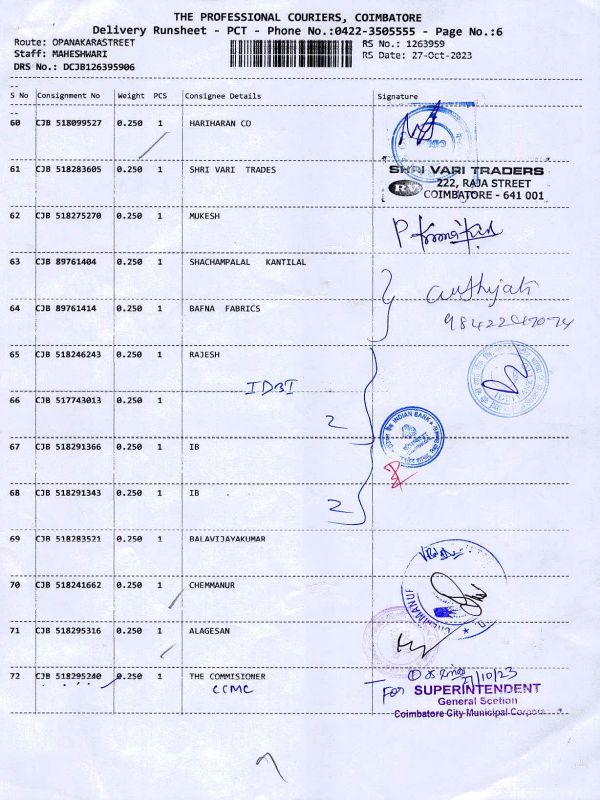 THE PROFESSIONAL COURIERS, COIMBATORE
Delivery Runsheet - PCT - Phone No.:0422-3505555 - Page No.:6
Route: OPANAKARASTREET RS No.: 1263959
Staff: MAHESHWARI RS Date: 27-Oct-2023
DRS No.: DCJB126395906
S No Consignment No Weight PCS Consignee Details Signature
60 CJB 518099527 0.250 1 HARIHARAN CO
61 CJB 518283605 0.250 1 SHRI VARI TRADES
SHRI VARI TRADERS
222, RAJA STREET
COIMBATORE - 641 001
62 CJB 518275270 0.250 1 MUKESH
63 CJB 89761404 0.250 1 SHACHAMPALAL KANTILAL
64 CJB 89761414 0.250 1 BAFNA FABRICS
65 CJB 518246243 0.250 1 RAJESH
IDBI
66 CJB 517743013 0.250 1
2
INDIAN BANK
67 CJB 518291366 0.250 1 IB
68 CJB 518291343 0.250 1 IB
2
69 CJB 518283521 0.250 1 BALAVIJAYAKUMAR
70 CJB 518241662 0.250 1 CHEMMANUR
71 CJB 518295316 0.250 1 ALAGESAN
72 CJB 518295240 0.250 1 THE COMMISIONER
CCMC
27/10/23
For SUPERINTENDENT
General Scetion
Coimbatore City Municipal Corpora